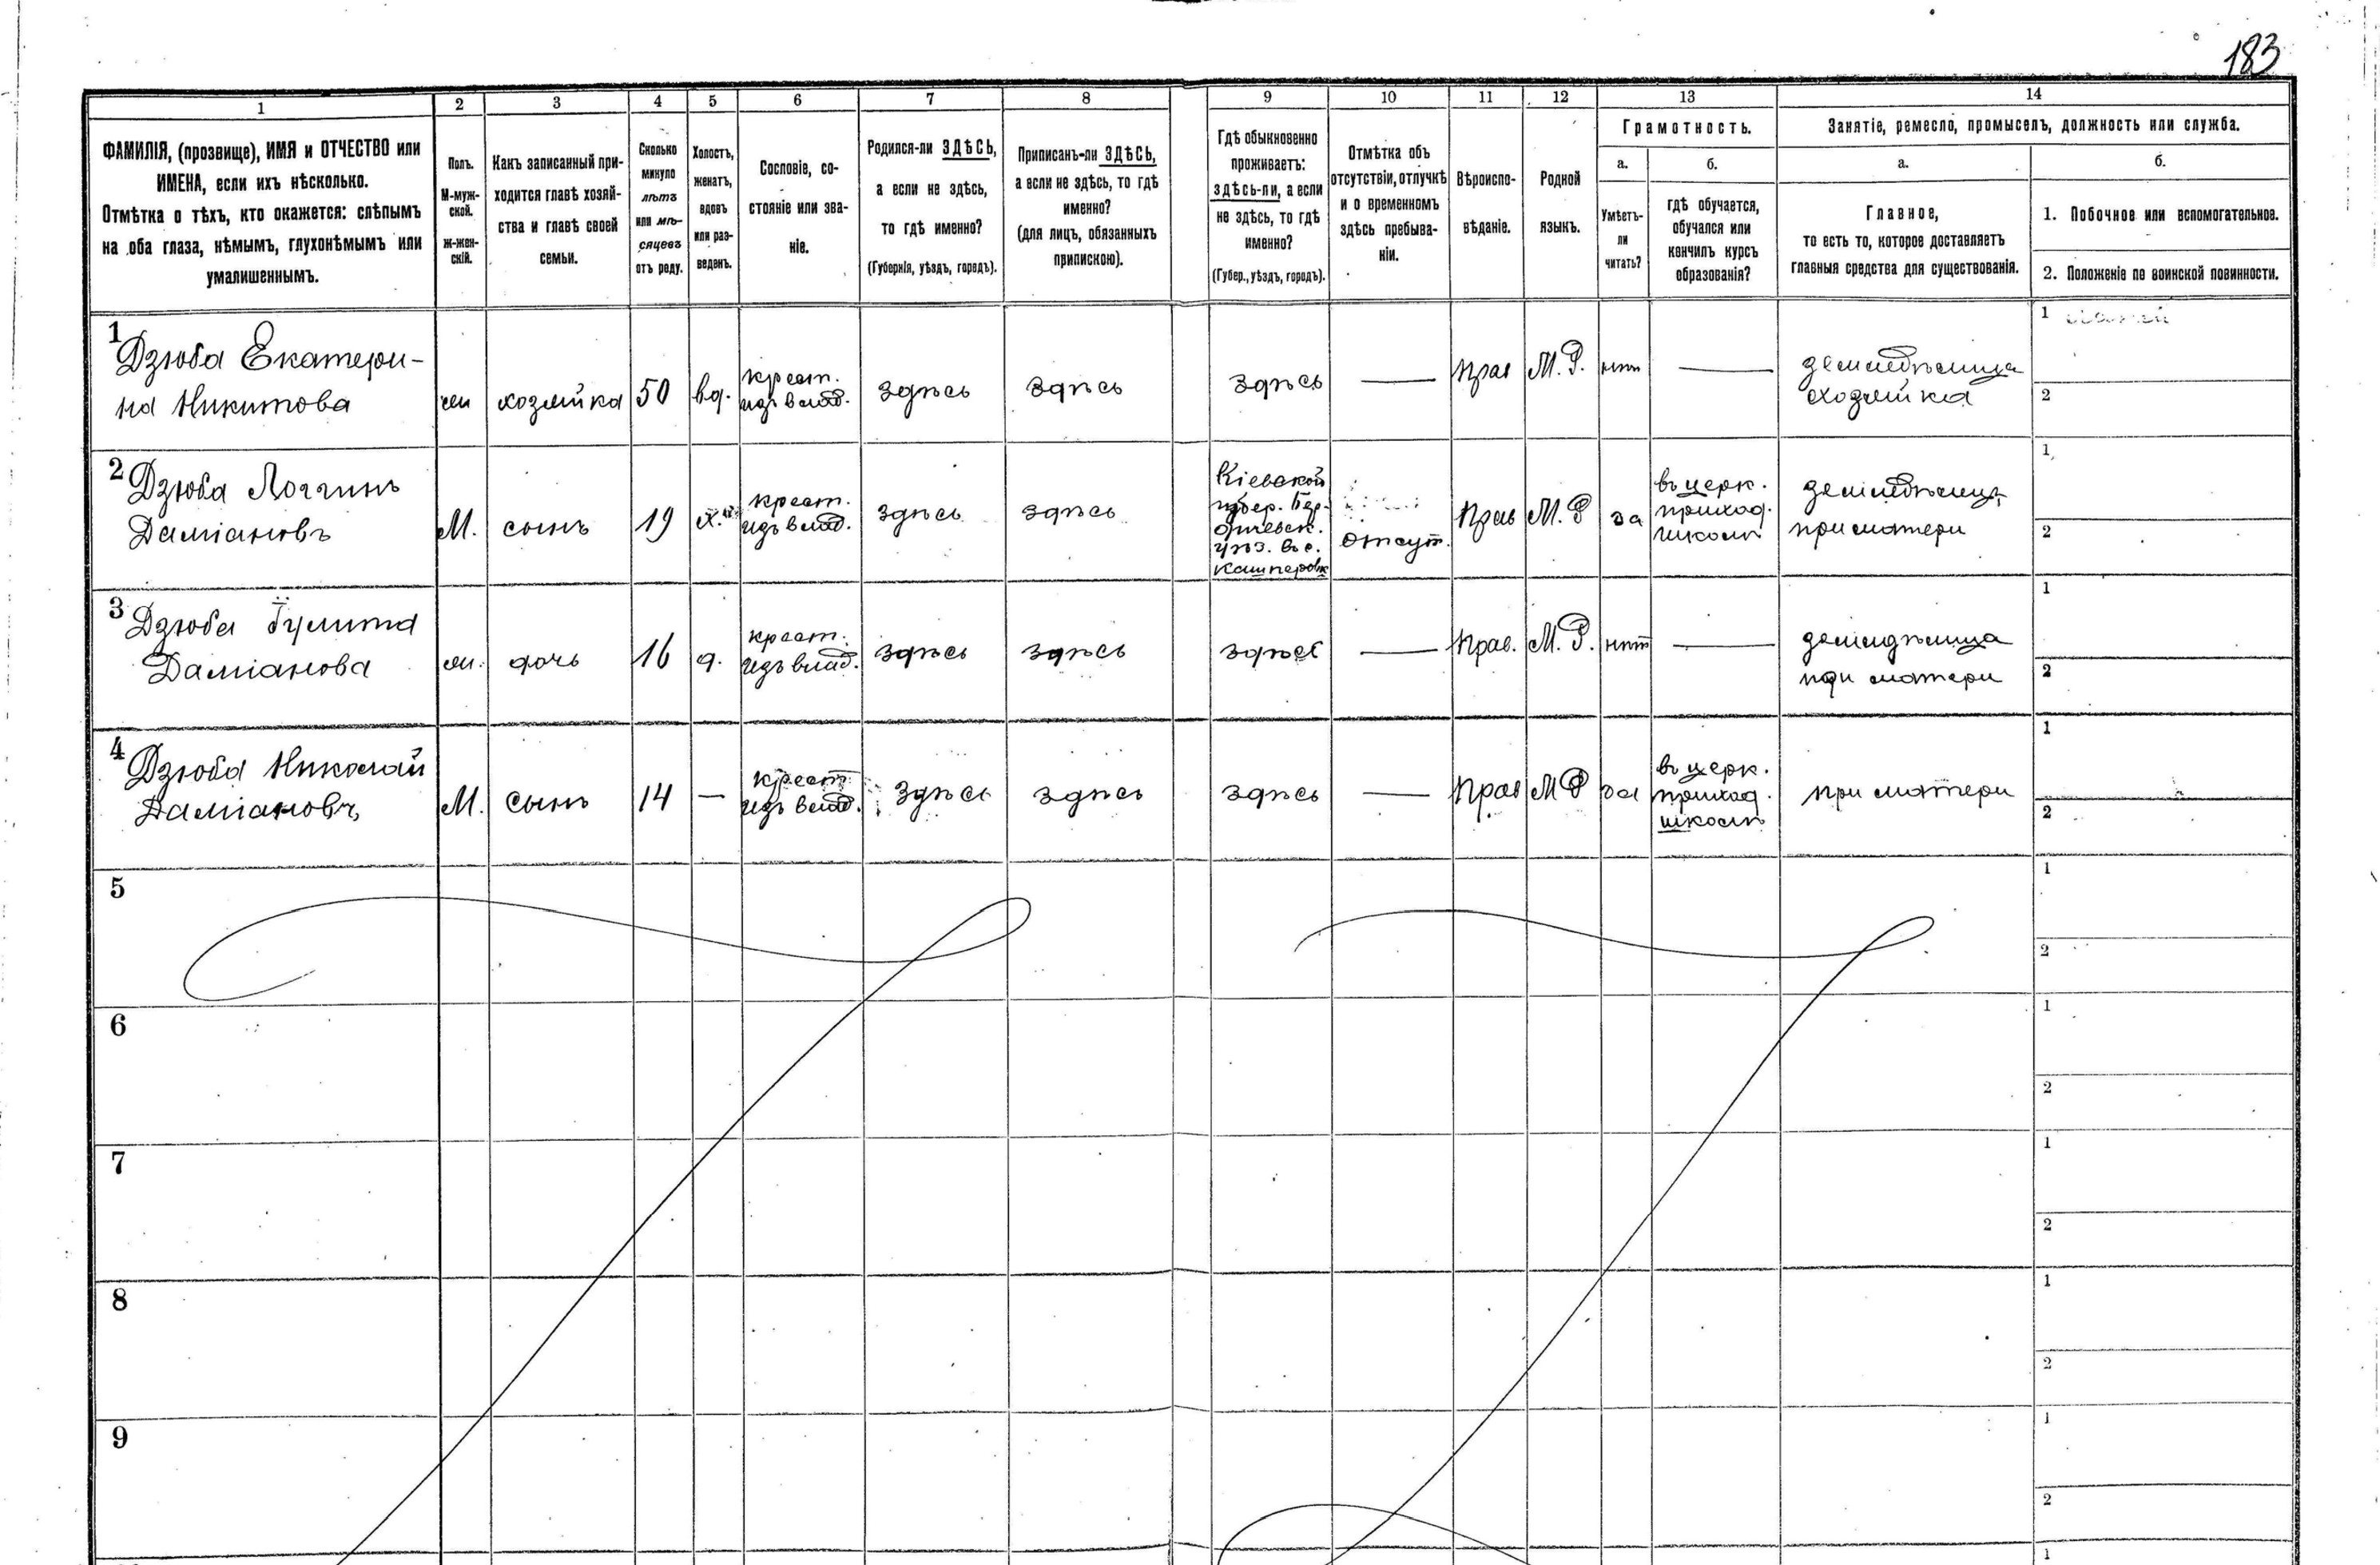 183
1 2 3 4 5 6 7 8 9 10 11 12 13 14
ФАМИЛІЯ, (прозвище), ИМЯ и ОТЧЕСТВО или
ИМЕНА, если ихъ нѣсколько.
Отмѣтка о тѣхъ, кто окажется: слѣпымъ
на оба глаза, нѣмымъ, глухонѣмымъ или
умалишеннымъ.
Полъ.
М-муж-
ской.
ж-жен-
скій.
Какъ записанный при-
ходится главѣ хозяй-
ства и главѣ своей
семьи.
Сколько
минуло
лѣтъ
или мѣ-
сяцевъ
отъ роду.
Холостъ,
женатъ,
вдовъ
или раз-
веденъ.
Сословіе, со-
стояніе или зва-
ніе.
Родился-ли ЗДѢСЬ,
а если не здѣсь,
то гдѣ именно?
(Губернія, уѣздъ, городъ).
Приписанъ-ли ЗДѢСЬ,
а если не здѣсь, то гдѣ
именно?
(для лицъ, обязанныхъ
припискою).
Гдѣ обыкновенно
проживаетъ:
здѣсь-ли, а если
не здѣсь, то гдѣ
именно?
(Губер., уѣздъ, городъ).
Отмѣтка объ
отсутствіи, отлучкѣ
и о временномъ
здѣсь пребыва-
ніи.
Вѣроиспо-
вѣданіе.
Родной
языкъ.
Грамотность.
а.
Умѣетъ-
ли
читать?
б.
гдѣ обучается,
обучался или
кончилъ курсъ
образованія?
Занятіе, ремесло, промыселъ, должность или служба.
а.
Главное,
то есть то, которое доставляетъ
главныя средства для существованія.
б.
1. Побочное или вспомогательное.
2. Положеніе по воинской повинности.
1
Дзюба Екатери-
на Никитова
жен
хозяйка
50
вд.
крест.
изъ влад.
здѣсь
здѣсь
здѣсь
—
Прав
М. Р.
нѣт
—
земледѣлица
хозяйка
1
2
2
Дзюба Логгинъ
Даміановъ
М.
сынъ
19
х.
крест.
изъ влад.
здѣсь
здѣсь
Кіевской
губер. Бер-
дичевск.
уѣз. въ с.
Кашперовк
отсут.
Прав
М. Р
да
въ церк.
приход.
школѣ
земледѣлецъ
при матери
1
2
3
Дзюба Іулита
Даміанова
жен.
дочь
16
д.
крест.
изъ влад.
здѣсь
здѣсь
здѣсь
—
Прав.
М. Р.
нѣт
—
земледѣлица
при матери
1
2
4
Дзюба Николай
Даміановъ
М.
сынъ
14
—
крест
изъ влад.
здѣсь
здѣсь
здѣсь
—
Прав
М Р
да
въ церк.
приход.
школѣ
при матери
1
2
5
1
2
6
1
2
7
1
2
8
1
2
9
1
2
1